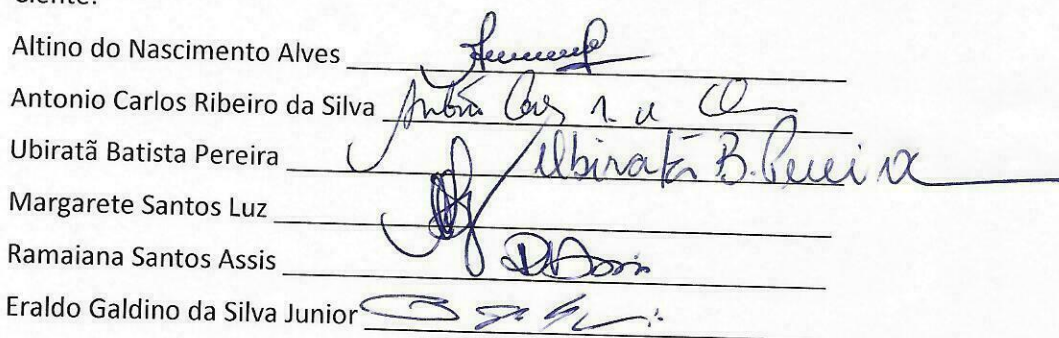 Ciente:
Altino do Nascimento Alves
Antonio Carlos Ribeiro da Silva
Ubiratã Batista Pereira Ubiratã B. Pereira
Margarete Santos Luz
Ramaiana Santos Assis
Eraldo Galdino da Silva Junior